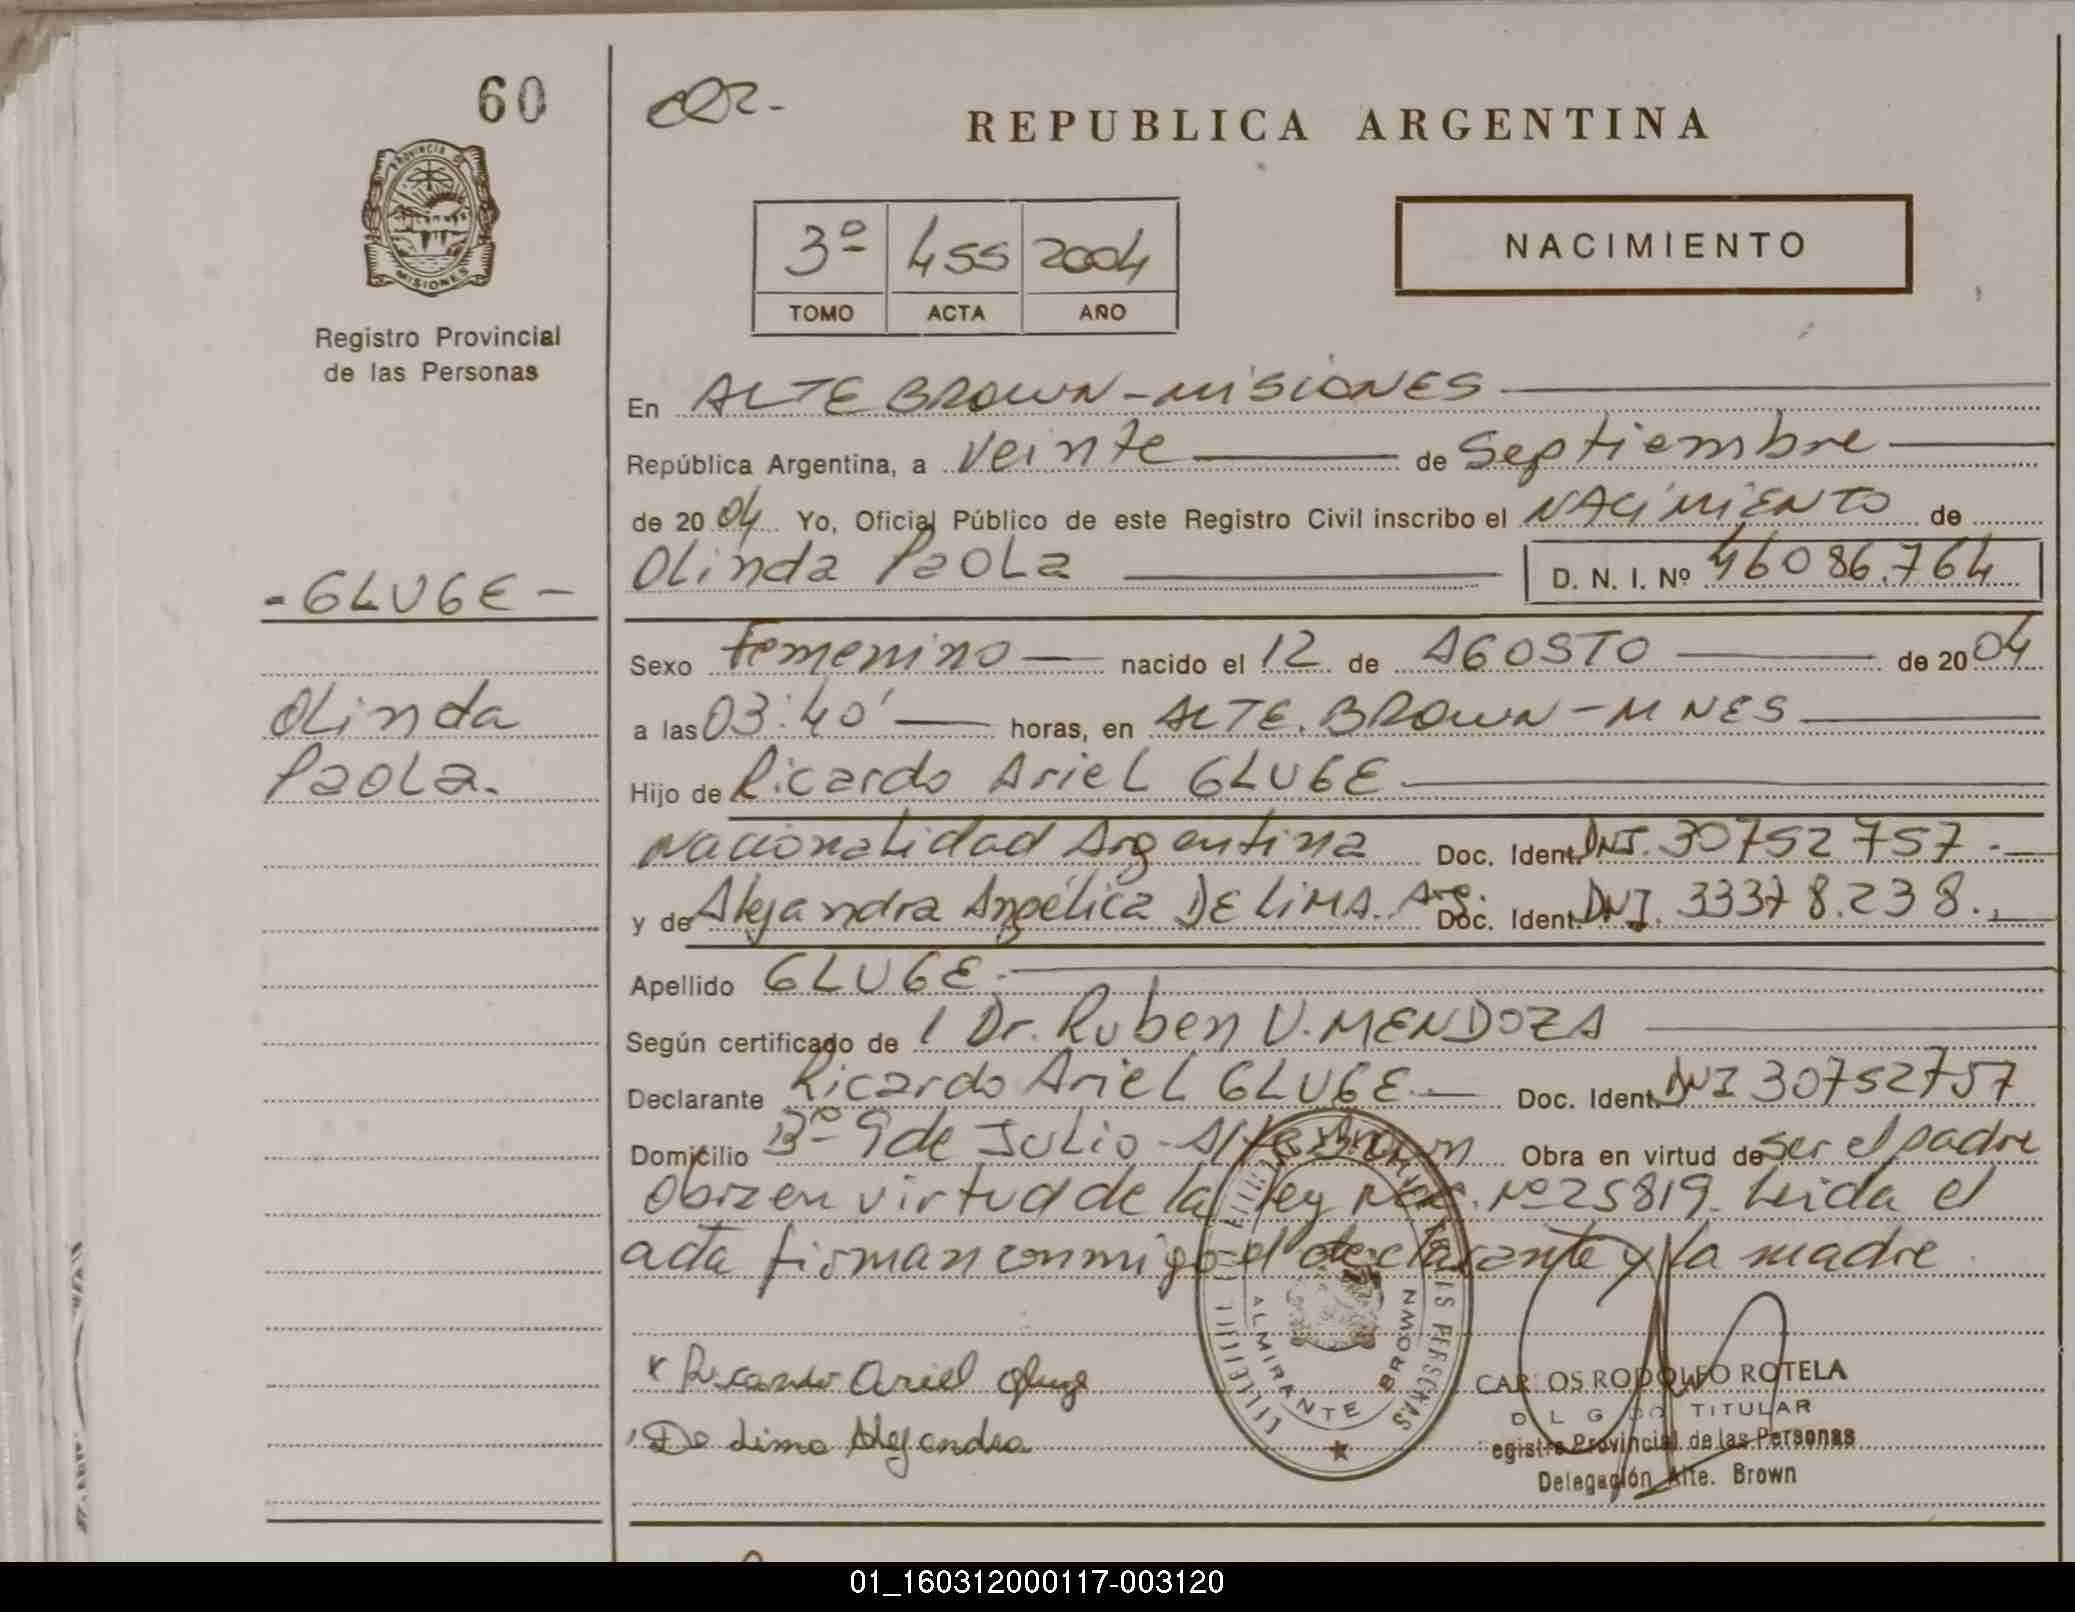 60
REPUBLICA ARGENTINA
PROVINCIA DE
MISIONES
Registro Provincial
de las Personas
3º 455 2004
TOMO ACTA AÑO
NACIMIENTO
En ALTE BROWN - MISIONES
República Argentina, a Veinte de Septiembre
de 20 04 Yo, Oficial Público de este Registro Civil inscribo el NACIMIENTO de
Olinda PaoLa D. N. I. Nº 46086.764
- GLUGE -
Olinda
PaoLa.
Sexo Femenino nacido el 12 de AGOSTO de 20 04
a las 03:40' horas, en ALTE. BROWN - MNES
Hijo de Ricardo Ariel GLUGE
Nacionalidad Argentina Doc. Ident. DNI. 30752757.
y de Alejandra Angélica DE LIMA. Arg. Doc. Ident. DNI. 33378.238.
Apellido GLUGE.
Según certificado de l Dr. Ruben V. MENDOZA
Declarante Ricardo Ariel GLUGE Doc. Ident. DNI 30752757
Domicilio Bº 9 de Julio - Alte Brown Obra en virtud de ser el padre
obra en virtud de la ley Nac. Nº 25819. Leida el
acta firman conmigo el declarante y la madre
Ricardo Ariel Gluge
De Lima Alejandra
ALMIRANTE BROWN
CARLOS RODOLFO ROTELA
TITULAR
egistro Provincial de las Personas
Delegación Alte. Brown
01_160312000117-003120